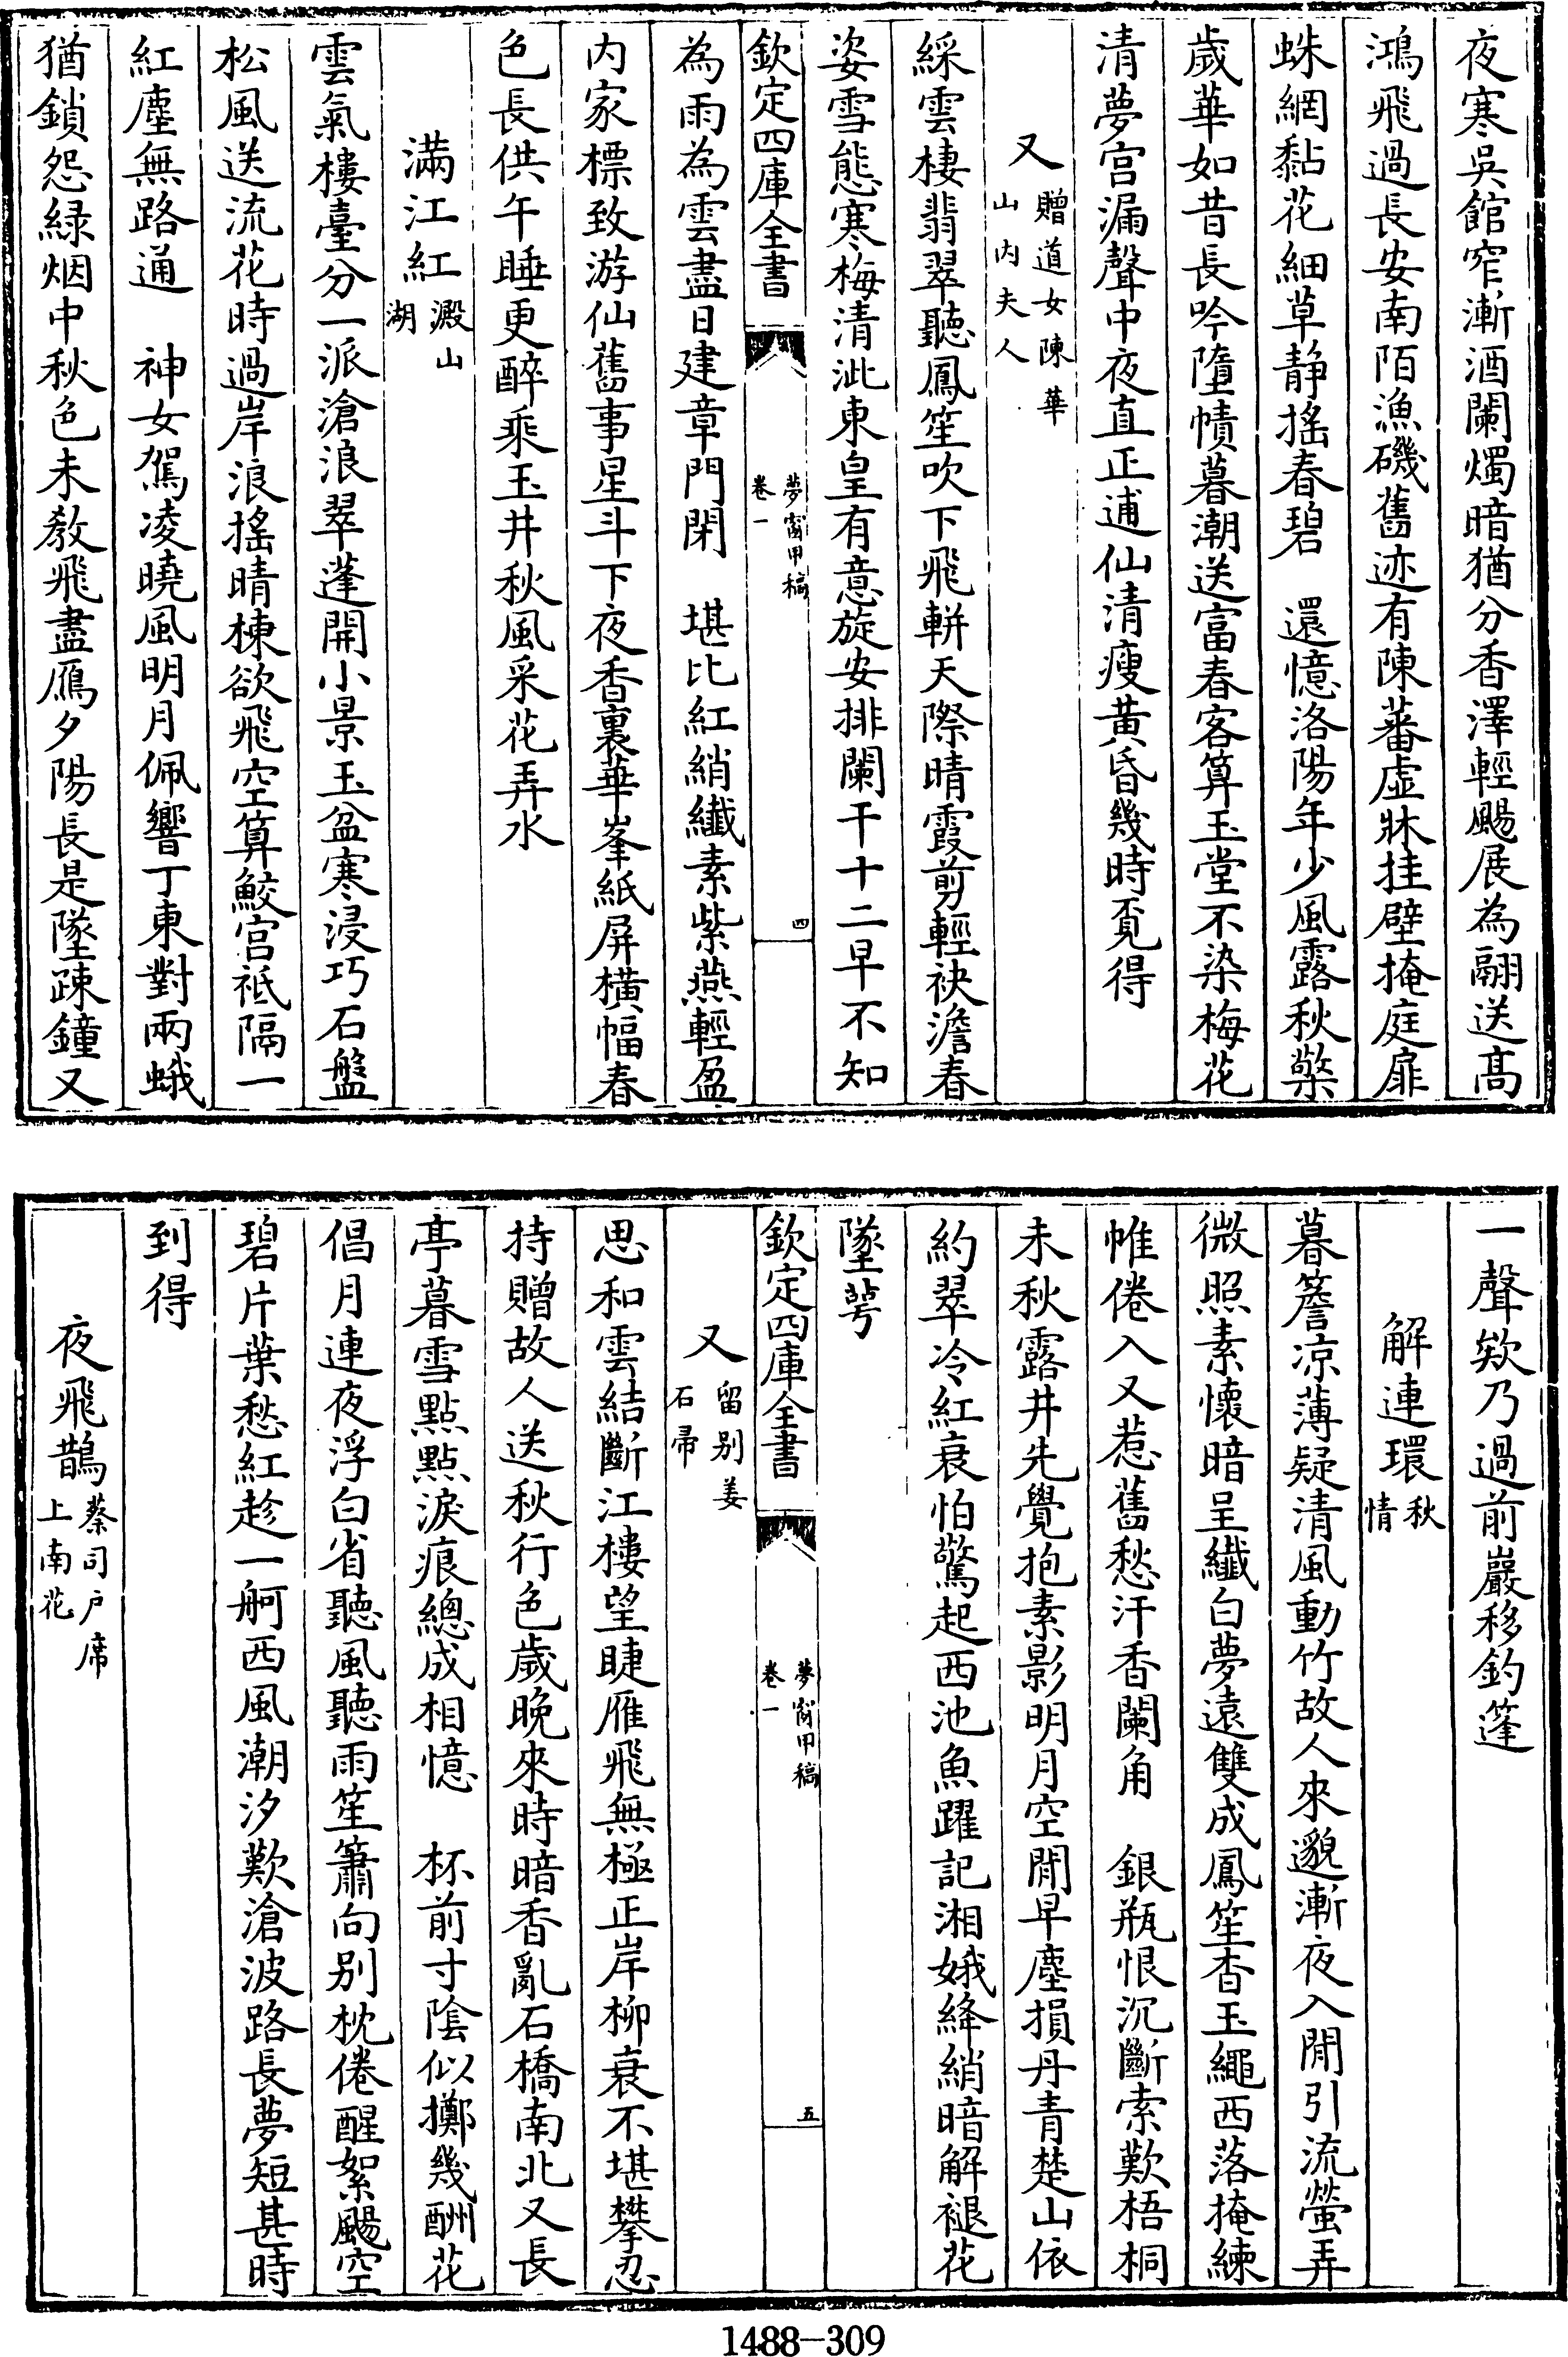 夜寒吳館窄漸酒闌燭暗猶分香澤輕颺展為翮送高
鴻飛過長安南陌漁磯舊迹有陳蕃虛牀挂壁掩庭扉
蛛網黏花細草静搖春碧　還憶洛陽年少風露秋檠
歲華如昔長吟墮幘暮潮送富春客算玉堂不染梅花
清夢宫漏聲中夜直正逋仙清瘦黄昏幾時覔得
又贈道女陳華山内夫人
綵雲棲翡翠聽鳳笙吹下飛軿天際晴霞剪輕袂澹春
姿雪態寒梅清泚東皇有意旋安排闌干十二早不知
欽定四庫全書
夢窗甲稿
卷一
四
為雨為雲盡日建章門閉　堪比紅綃纎素紫燕輕盈
内家標致游仙舊事星斗下夜香裏華峯紙屏横幅春
色長供午睡更醉乘玉井秋風采花弄水
滿江紅澱山湖
雲氣樓臺分一派滄浪翠蓬開小景玉盆寒浸巧石盤
松風送流花時過岸浪搖晴棟欲飛空算鮫宫祗隔一
紅塵無路通　神女駕凌曉風明月佩響丁東對兩蛾
猶鎖怨緑烟中秋色未教飛盡鴈夕陽長是墜疎鐘又
一聲欸乃過前巖移釣篷
解連環秋情
暮簷凉薄疑清風動竹故人來邈漸夜入閒引流螢弄
微照素懷暗呈纎白夢遠雙成鳳笙杳玉繩西落掩練
帷倦入又惹舊愁汗香闌角　銀瓶恨沉斷索歎梧桐
未秋露井先覺抱素影明月空閒早塵損丹青楚山依
約翠冷紅衰怕驚起西池魚躍記湘娥絳綃暗解褪花
墜萼
欽定四庫全書
夢窗甲稿
卷一
五
又留别姜石帚
思和雲結斷江樓望睫雁飛無極正岸柳衰不堪攀忍
持贈故人送秋行色歲晚來時暗香亂石橋南北又長
亭暮雪點點淚痕總成相憶　杯前寸陰似擲幾酬花
倡月連夜浮白省聽風聽雨笙簫向别枕倦醒絮颺空
碧片葉愁紅趁一舸西風潮汐歎滄波路長夢短甚時
到得
夜飛鵲蔡司户席上南花
1488-309